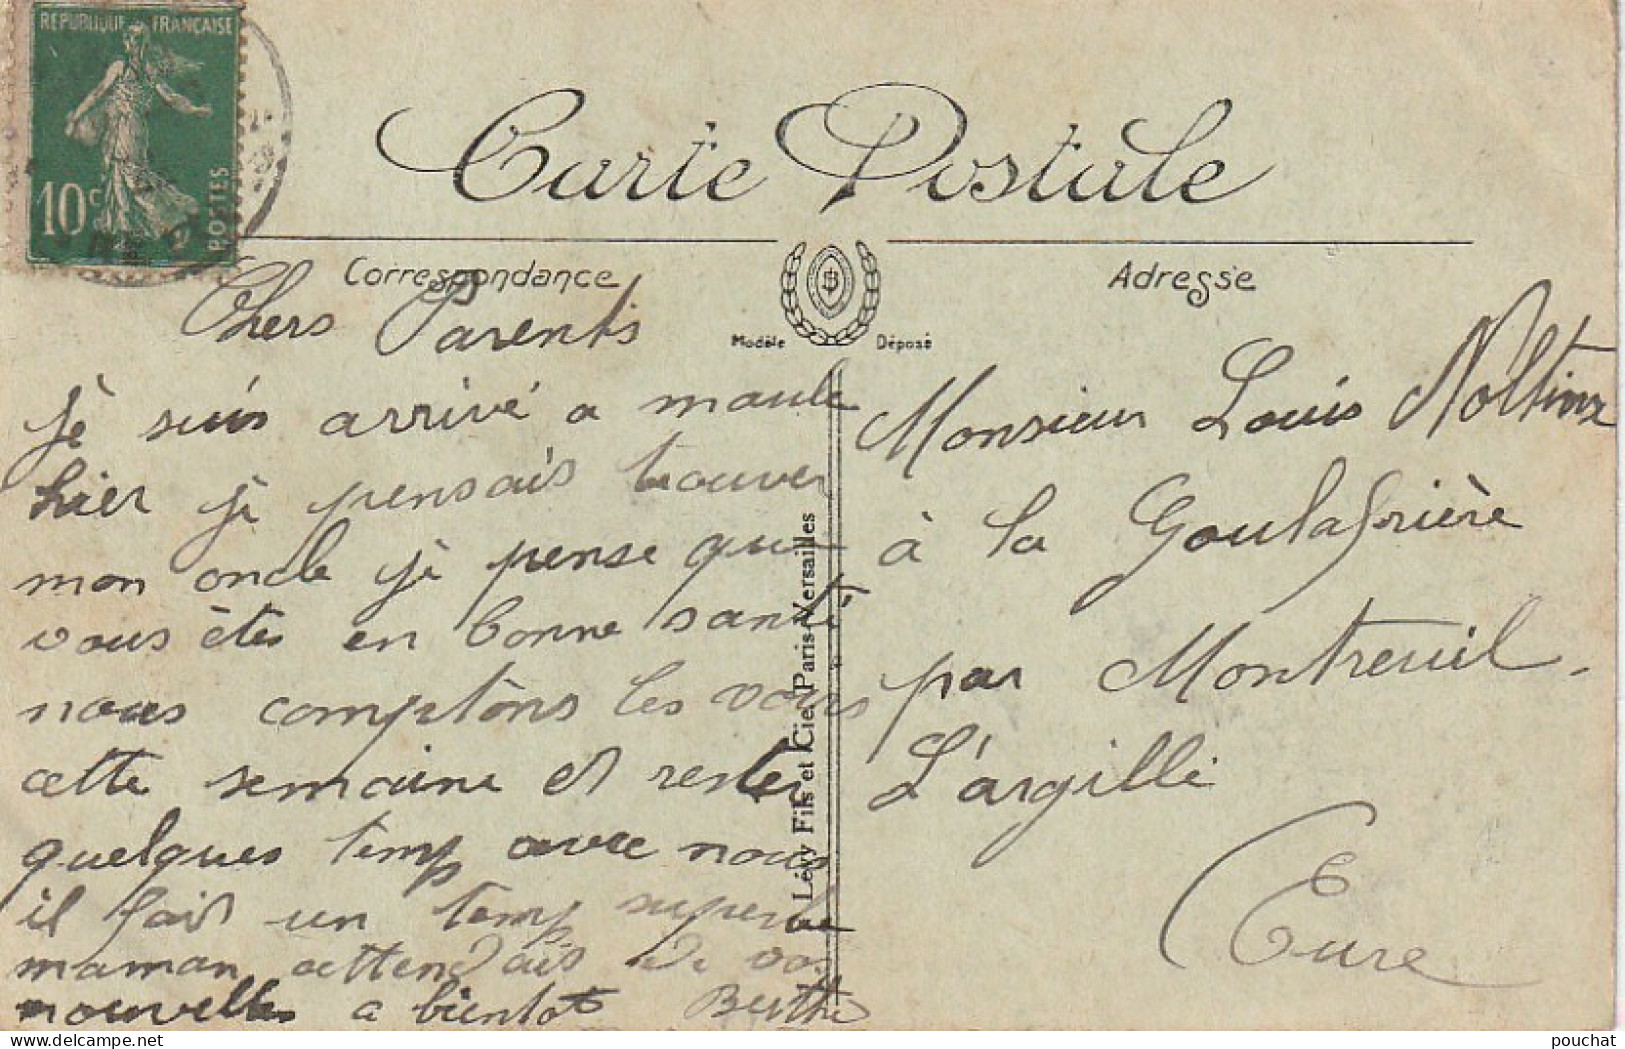 REPUBLIQUE FRANÇAISE
10c
POSTES
Carte Postale
Correspondance
Adresse
Modèle Déposé
Chers Parents
je suis arrivé a maule
hier je pensais trouver
mon oncle je pense que
vous êtes en bonne santé
nous comptons les vois
cette semaine et rester
quelques temp avec nous
il fait un temp superbe
maman attendais de vos
nouvelles a bientot Berthe
Lévy Fils et Cie, Paris-Versailles
Monsieur Louis
à la Goulafrière
par Montreuil
L'argillé
Eure
pouchat